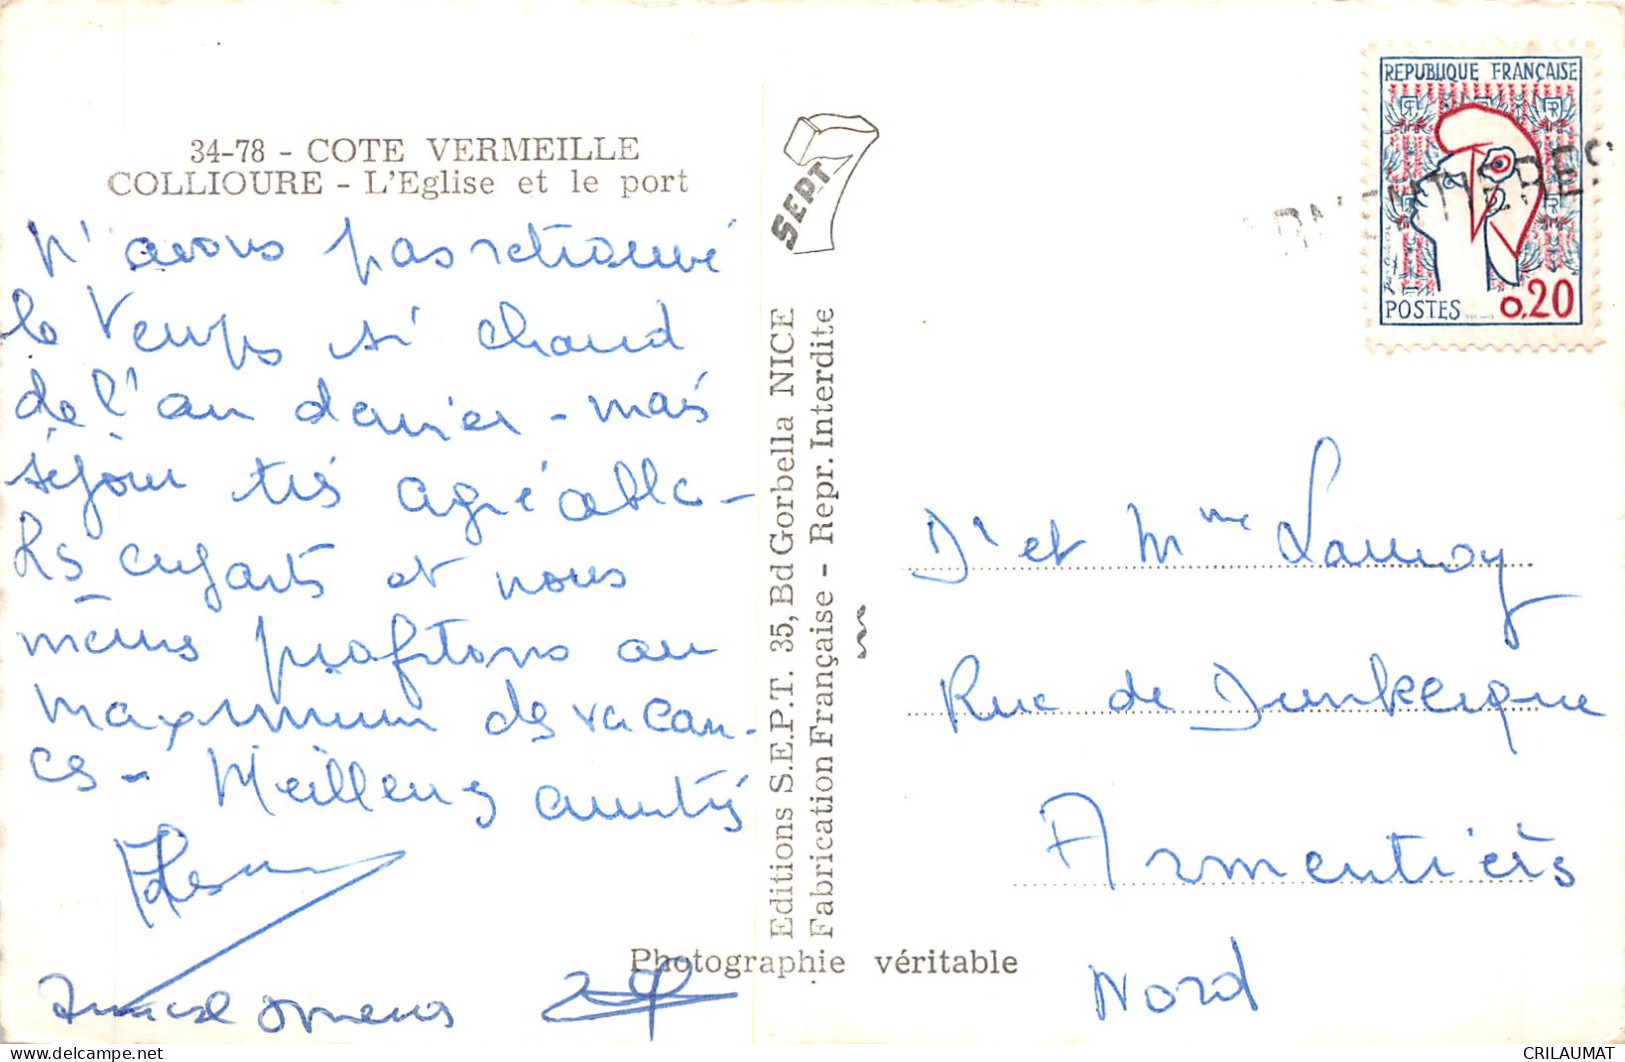 34-78 - COTE VERMEILLE
COLLIOURE - L'Eglise et le port
N'avons pas retrouvé
le temps si chaud
de l'an dernier - mais
séjour très agréable -
Les enfants et nous
mêmes profitons au
maximum des vacan-
ces - Meilleures amitiés
SEPT
Editions S.E.P.T. 35, Bd Gorbella NICE
Fabrication Française - Repr. Interdite
Photographie véritable
REPUBLIQUE FRANÇAISE
POSTES 0,20
ARMENTIERES
Dr et Mme Lannoy
Rue de Dunkerque
Armentières
Nord
CRILAUMAT